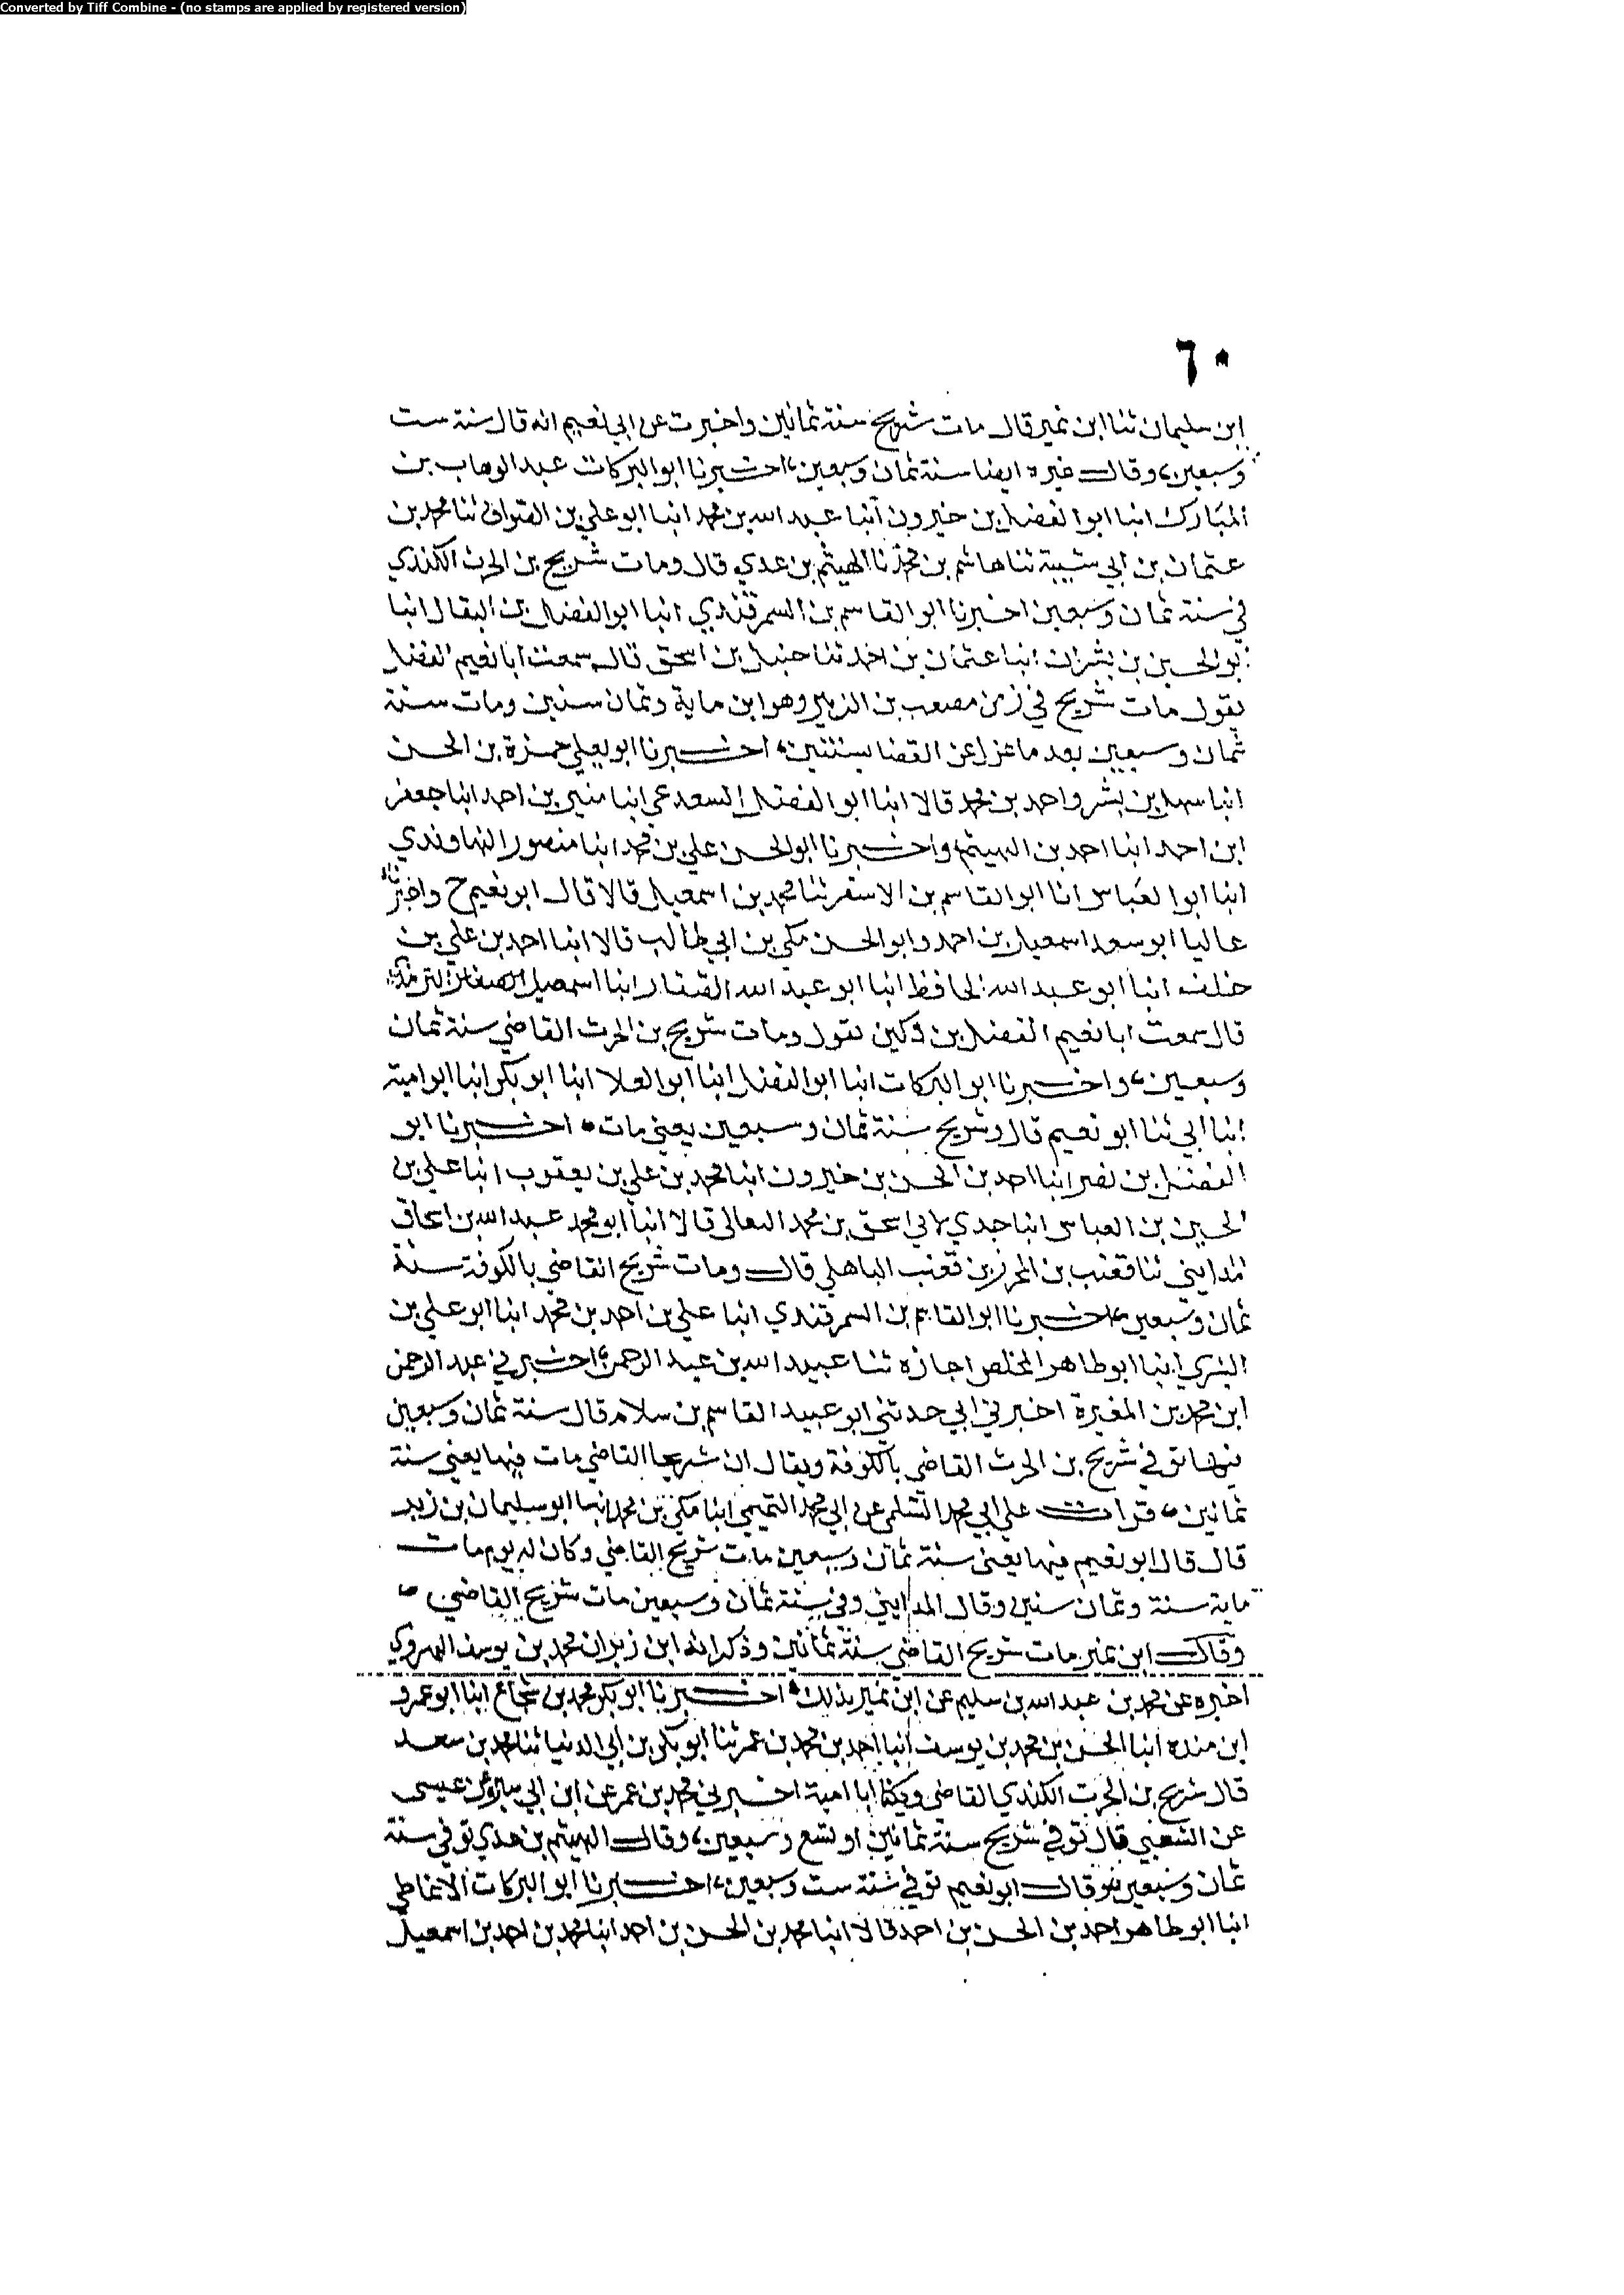 Converted by Tiff Combine - (no stamps are applied by registered version)
٦٠
ابن سليمان ثنا ابن نمير قال مات شريح سنة ثمانين واخبرت عن ابي نعيم انه قال سنة ست
وسبعين، وقال غيره ايضا سنة ثمان وسبعين، اخبرنا ابو البركات عبد الوهاب بن
المبارك انبا ابو الفضل بن خيرون انبا عبد الله بن محمد انبا ابو علي بن الصواف ثنا محمد بن
عثمان بن ابي شيبة ثنا هاشم بن محمد ثنا الهيثم بن عدي قال ومات شريح بن الحرث الكندي
في سنة ثمان وسبعين اخبرنا ابو القاسم بن السمرقندي انبا ابو الفضل بن البقال انبا
ابو الحسين بن بشران انبا عثمان بن احمد ثنا حنبل بن اسحق قال سمعت ابا نعيم الفضل
يقول مات شريح في زمن مصعب بن الزبير وهو ابن ماية وثمان سنين ومات سنة
ثمان وسبعين بعد ما عزل عن القضا بسنتين، اخبرنا ابو يعلى حمزة بن الحسن
انبا سهل بن بشر واحمد بن محمد قالا انبا ابو الفضل السعدي انبا منير بن احمد انبا جعفر
ابن احمد انبا احمد بن الهيثم، واخبرنا ابو الحسن علي بن محمد انبا منصور النهاوندي
انبا ابو العباس انا ابو القاسم بن الاسقر ثنا محمد بن اسمعيل قالا قال ابو نعيم ح واخبرناه
عاليا ابو سعد اسمعيل بن احمد وابو الحسن مكي بن ابي طالب قالا انبا احمد بن علي بن
خلف انبا ابو عبد الله الحافظ انبا ابو عبد الله الصفار انبا اسمعيل الترمذي
قال سمعت ابا نعيم الفضل بن دكين يقول ومات شريح بن الحرث القاضي سنة ثمان
وسبعين، واخبرنا ابو البركات انبا ابو الفضل انبا ابو العلا انبا ابو بكر انبا ابو امية
انبا ابي ثنا ابو نعيم قال وشريح سنة ثمان وسبعين يعني مات، اخبرنا ابو
الفضل بن نصر انبا احمد بن الحسن بن خيرون انبا محمد بن علي بن يعقوب انبا علي بن
الحسين بن العباس انبا جدي لابي اسحق بن محمد النعالي قالا انبا ابو محمد عبد الله بن اسحاق
المدايني ثنا قعنب بن المحرز بن قعنب الباهلي قال ومات شريح القاضي بالكوفة سنة
ثمان وسبعين، اخبرنا ابو القاسم بن السمرقندي انبا علي بن احمد بن محمد انبا ابو علي بن
البسري انبا ابو طاهر المخلص اجازه ثنا عبيد الله بن عبد الرحمن، اخبرني عبد الرحمن
ابن محمد بن المغيرة اخبرني ابي حدثني ابو عبيد القاسم بن سلام قال سنة ثمان وسبعين
فيها توفي شريح بن الحرث القاضي بالكوفة ويقال ان شريحا القاضي مات فيها يعني سنة
ثمانين، قرات على ابي محمد السلمي عن ابي محمد التميمي انبا مكي بن محمد انبا ابو سليمان بن زبر
قال قال ابو نعيم فيها يعني سنة ثمان وسبعين مات شريح القاضي وكان له يوم مات
ماية سنة وثمان سنين وقال المدايني وفي سنة ثمان وسبعين مات شريح القاضي،
وقال ابن نمير مات شريح القاضي سنة ثمانين وذكر انه ابن زبر ان محمد بن يوسف الهروي
اخبره عن محمد بن عبد الله بن سليم عن ابن نمير بذلك، اخبرنا ابو بكر محمد بن شجاع انبا ابو عمرو
ابن منده انبا الحسن بن محمد بن يوسف انبا احمد بن محمد بن عمر ثنا ابو بكر بن ابي الدنيا ثنا محمد بن سعد
قال شريح بن الحرث الكندي القاضي ويكنا ابا امية اخبرني محمد بن عمر عن ابن ابي سبرة عن عيسى
عن الشعبي قال توفي شريح سنة ثمانين او تسع وسبعين، وقال الهيثم بن عدي توفي سنة
ثمان وسبعين وقال ابو نعيم توفي سنة ست وسبعين، اخبرنا ابو البركات الانماطي
انبا ابو طاهر احمد بن الحسن بن احمد قالا انبا محمد بن الحسن بن احمد انبا محمد بن احمد بن اسمعيل